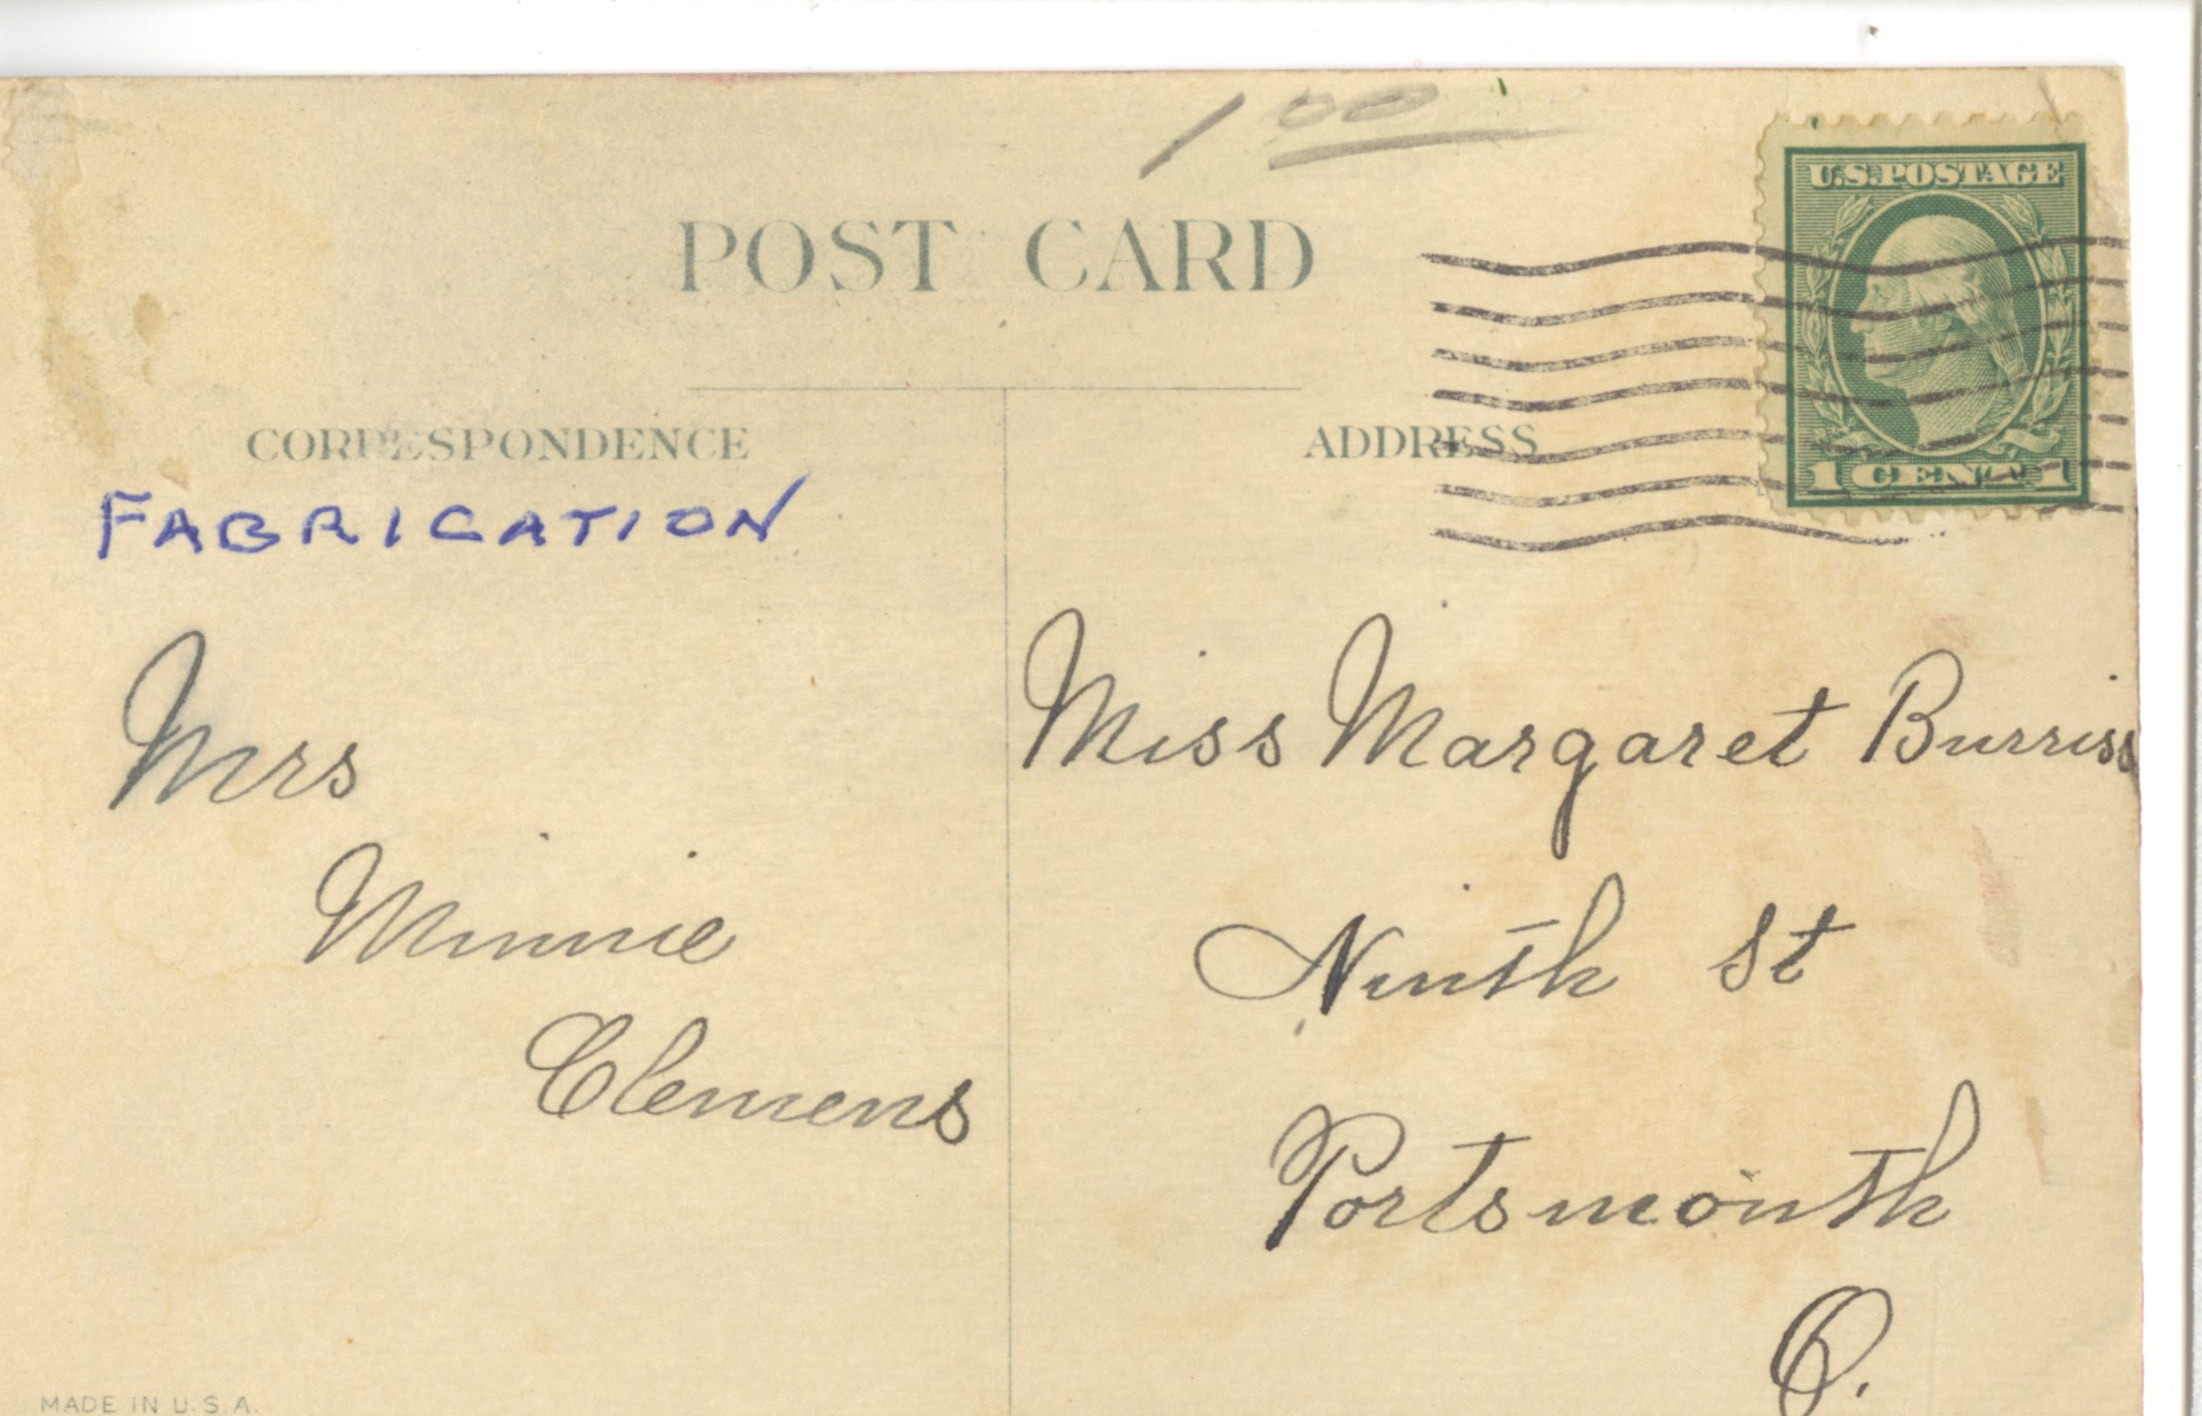 1 00
POST CARD
U.S. POSTAGE
1 CENT 1
CORRESPONDENCE
FABRICATION
Mrs
Minnie
Clemens
MADE IN U.S.A.
ADDRESS
Miss Margaret Burriss
Ninth St
Portsmouth
O.